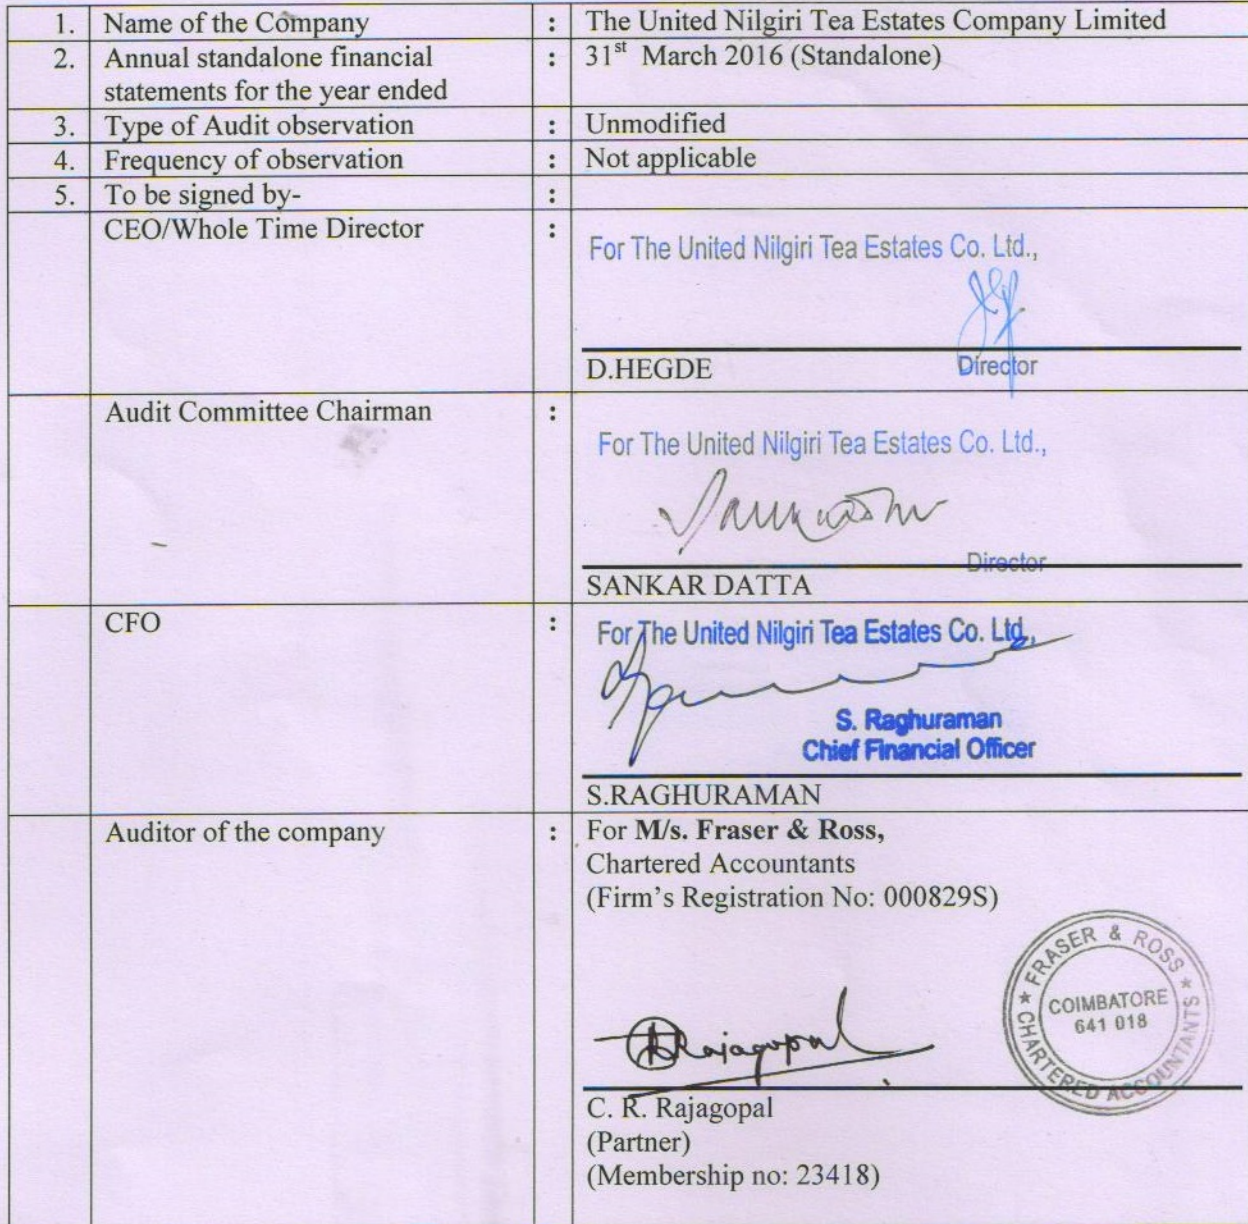 1. Name of the Company : The United Nilgiri Tea Estates Company Limited
2. Annual standalone financial : 31st March 2016 (Standalone)
statements for the year ended
3. Type of Audit observation : Unmodified
4. Frequency of observation : Not applicable
5. To be signed by- :
CEO/Whole Time Director :
For The United Nilgiri Tea Estates Co. Ltd.,
Director
D.HEGDE
Audit Committee Chairman :
For The United Nilgiri Tea Estates Co. Ltd.,
Director
SANKAR DATTA
CFO : For The United Nilgiri Tea Estates Co. Ltd.,
S. Raghuraman
Chief Financial Officer
S.RAGHURAMAN
Auditor of the company : For M/s. Fraser & Ross,
Chartered Accountants
(Firm's Registration No: 000829S)
FRASER & ROSS
COIMBATORE
641 018
* CHARTERED ACCOUNTANTS *
Rajagopal
C. R. Rajagopal
(Partner)
(Membership no: 23418)